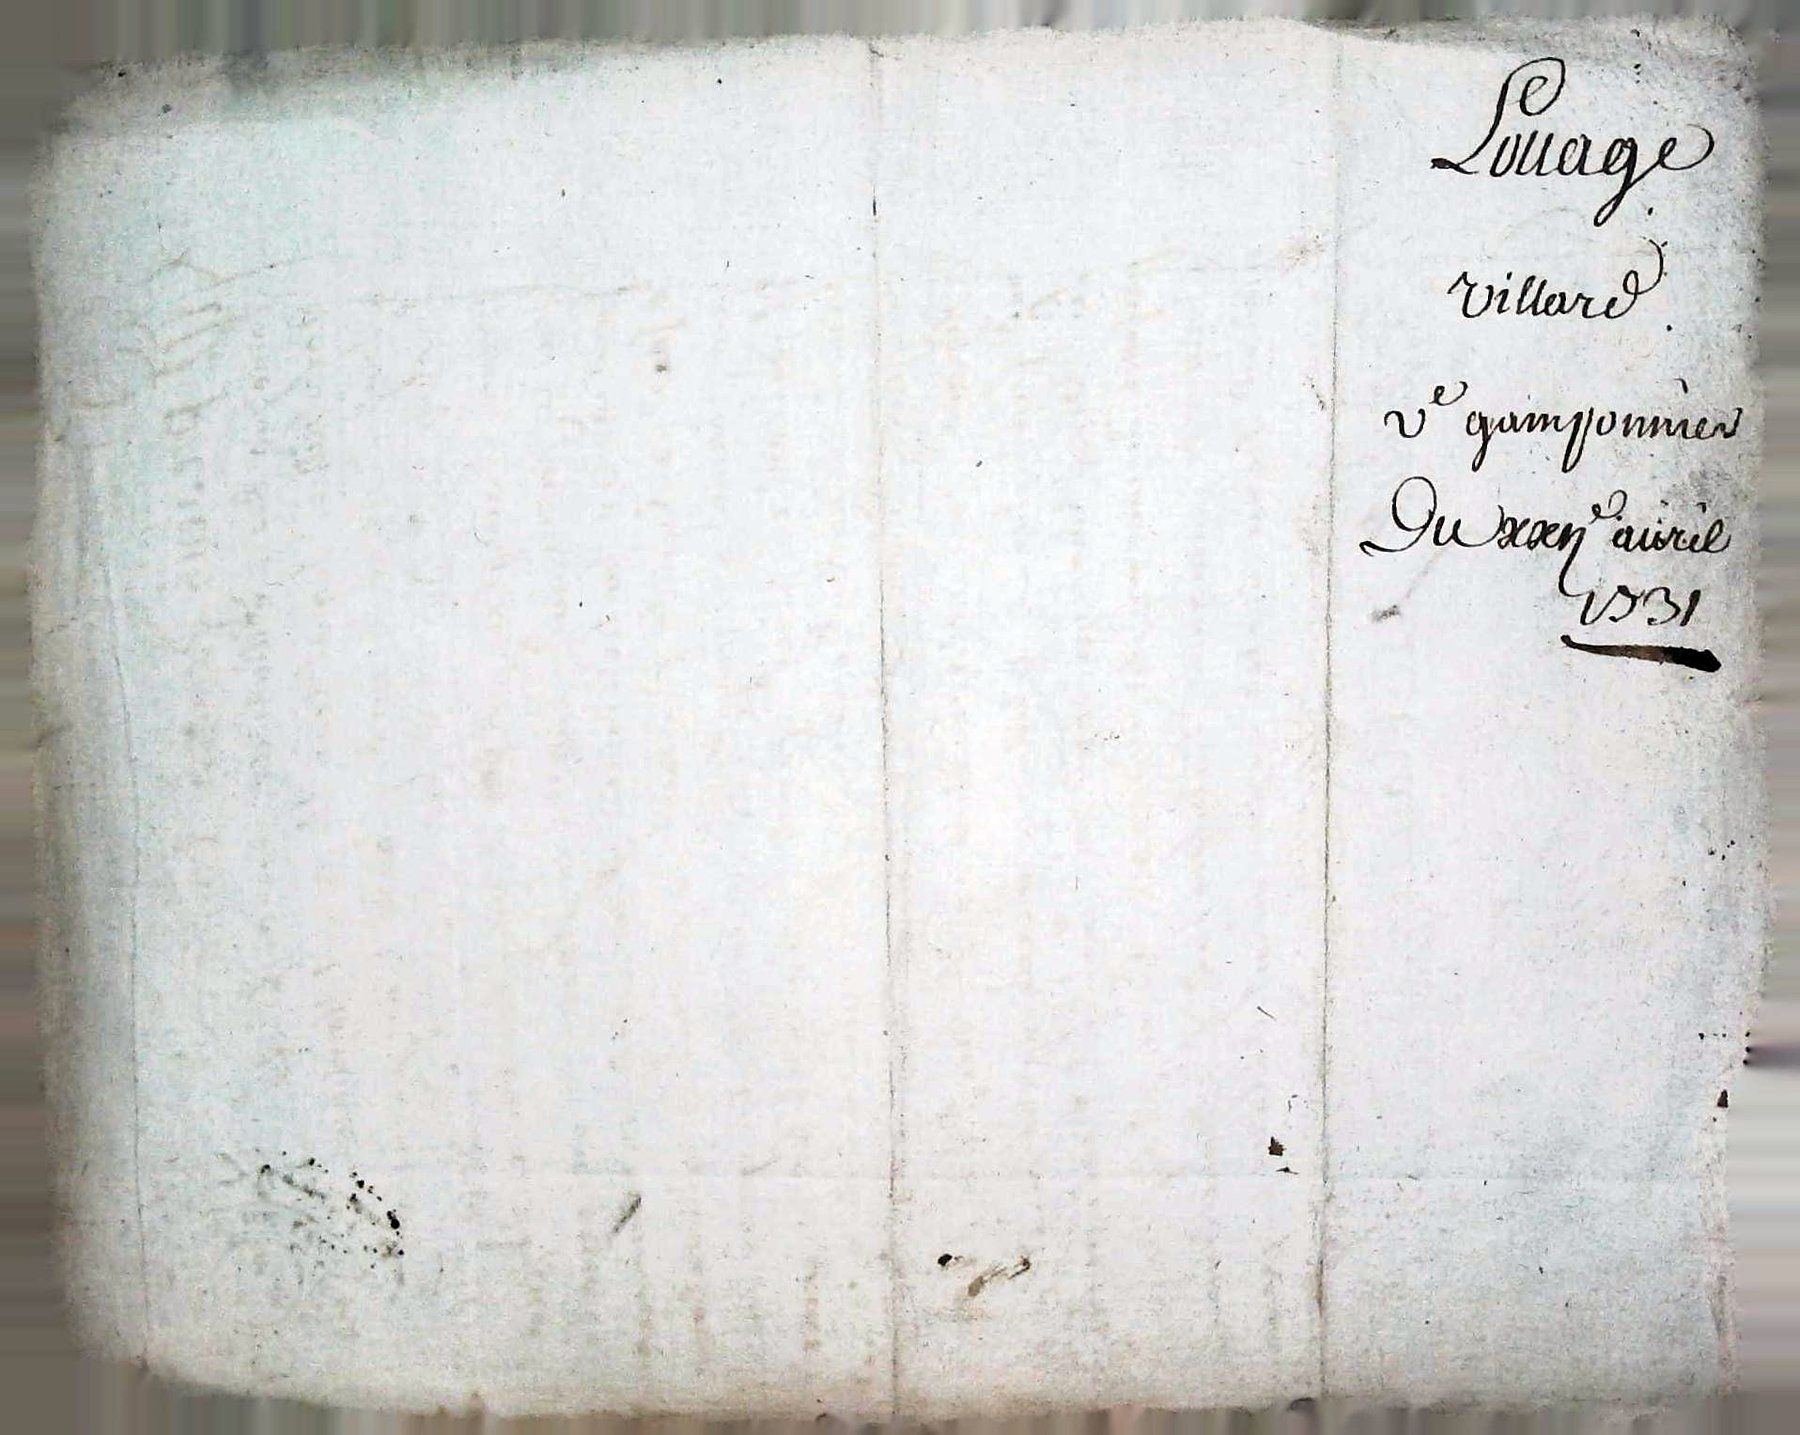 Louage
villard
ve gamponnier
Du xxije auril
1731